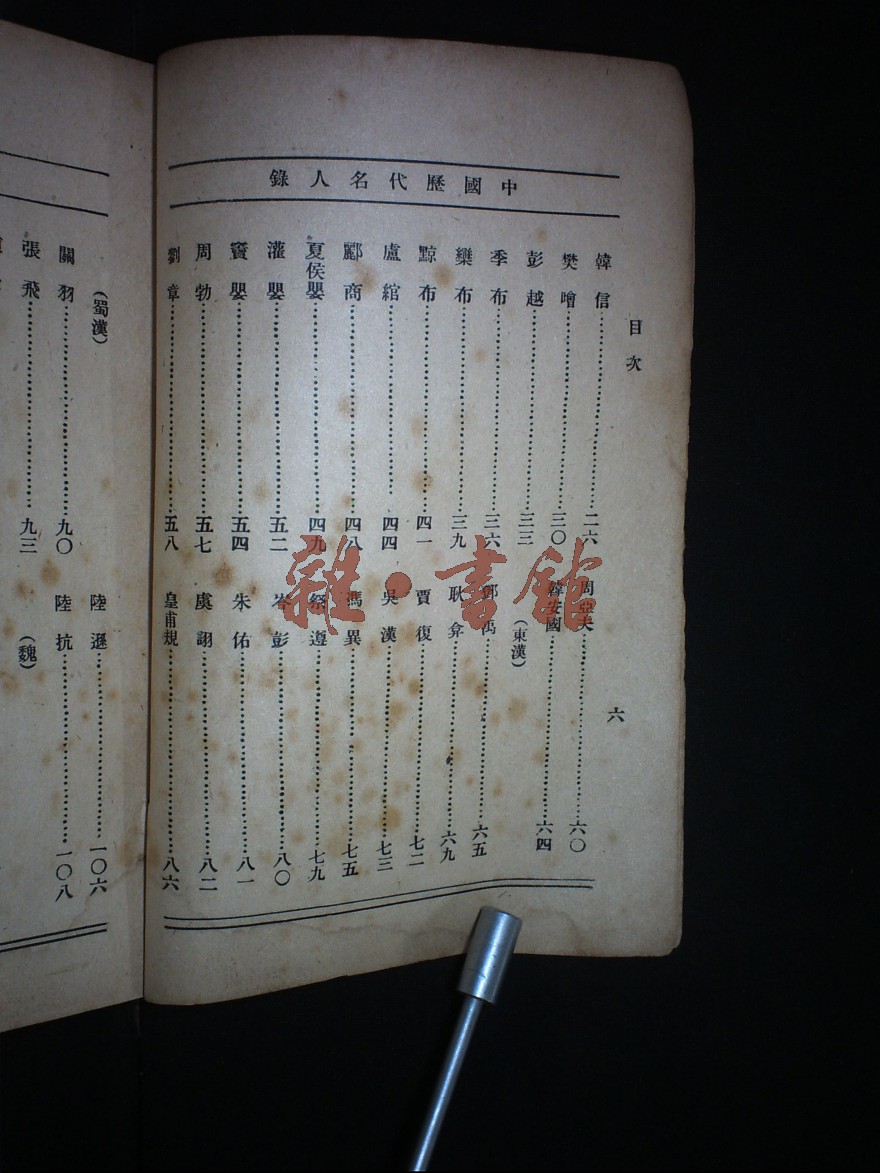 中國歷代名人錄
目次
六
韓信……二六
樊噲……三〇
彭越……三三
季布……三六
欒布……三九
黥布……四一
盧綰……四四
酈商……四八
夏侯嬰……四九
灌嬰……五二
竇嬰……五四
周勃……五七
劉章……五八
周亞夫……六〇
韓安國……六四
(東漢)
鄧禹……六五
耿弇……六九
賈復……七二
吳漢……七三
馮異……七五
祭遵……七九
岑彭……八〇
朱佑……八一
虞詡……八二
皇甫規……八六
(蜀漢)
關羽……九〇
張飛……九三
陸遜……一〇六
陸抗……一〇八
(魏)
雜·書館